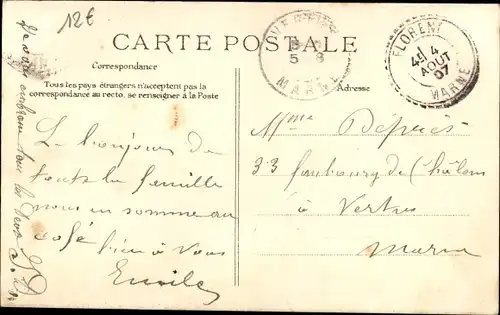 12€
CARTE POSTALE
Correspondance
Tous les pays étrangers n'acceptent pas la
correspondance au recto. se renseigner à la Poste
Adresse
MARNE
5 8
FLORENT
4 AOUT 07
MARNE
Le bonjour de
toute la famille
nous en sommes au
café
bien à vous
Emile
Mme Després
33 faubourg de Châlons
à Vertus
Marne
Je vous embrasse tous les deux